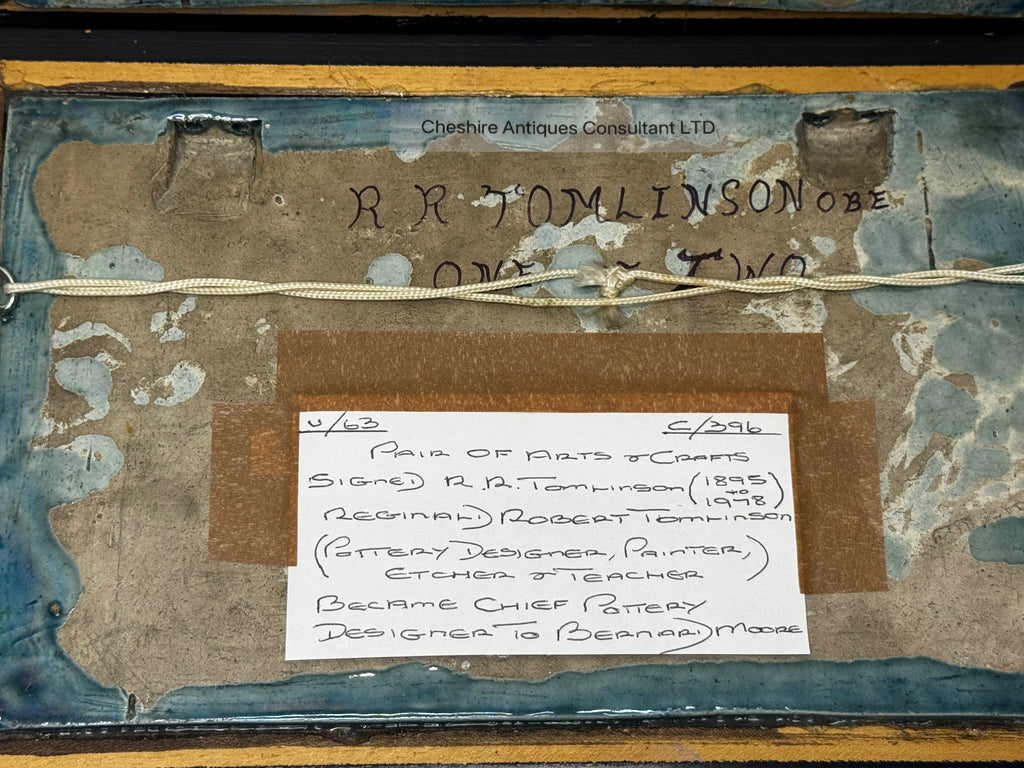 Cheshire Antiques Consultant LTD
R R TOMLINSON OBE
ONE TWO
U/63 C/396
PAIR OF ARTS & CRAFTS
SIGNED R.R. TOMLINSON (1895 TO 1978)
REGINALD ROBERT TOMLINSON
(POTTERY DESIGNER, PAINTER,
ETCHER & TEACHER)
BECAME CHIEF POTTERY
DESIGNER TO BERNARD MOORE